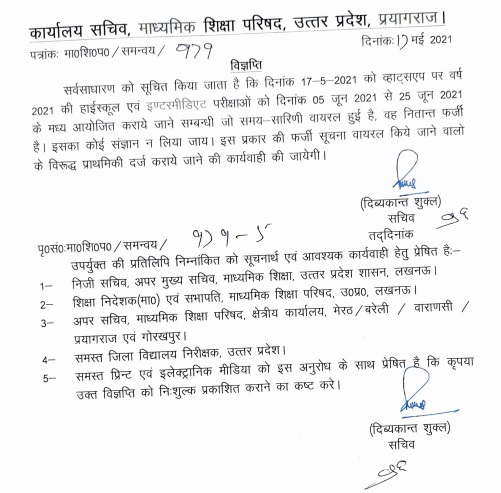 कार्यालय सचिव, माध्यमिक शिक्षा परिषद, उत्तर प्रदेश, प्रयागराज।
पत्रांकः मा०शि०प० / समन्वय / ११९
दिनांकः 17 मई 2021
विज्ञप्ति
सर्वसाधारण को सूचित किया जाता है कि दिनांक 17-5-2021 को व्हाट्सएप पर वर्ष
2021 की हाईस्कूल एवं इण्टरमीडिएट परीक्षाओं को दिनांक 05 जून 2021 से 25 जून 2021
के मध्य आयोजित कराये जाने सम्बन्धी जो समय–सारिणी वायरल हुई है, वह नितान्त फर्जी
है। इसका कोई संज्ञान न लिया जाय। इस प्रकार की फर्जी सूचना वायरल किये जाने वालो
के विरूद्ध प्राथमिकी दर्ज कराये जाने की कार्यवाही की जायेगी।
(दिब्यकान्त शुक्ल)
सचिव
तद्दिनांक
पृ०सं०:मा०शि०प० / समन्वय /
उपर्युक्त की प्रतिलिपि निम्नांकित को सूचनार्थ एवं आवश्यक कार्यवाही हेतु प्रेषित है:–
1– निजी सचिव, अपर मुख्य सचिव, माध्यमिक शिक्षा, उत्तर प्रदेश शासन, लखनऊ।
2– शिक्षा निदेशक(मा०) एवं सभापति, माध्यमिक शिक्षा परिषद, उ०प्र०, लखनऊ।
3– अपर सचिव, माध्यमिक शिक्षा परिषद, क्षेत्रीय कार्यालय, मेरठ / बरेली / वाराणसी /
प्रयागराज एवं गोरखपुर।
4– समस्त जिला विद्यालय निरीक्षक, उत्तर प्रदेश।
5– समस्त प्रिन्ट एवं इलेक्ट्रानिक मीडिया को इस अनुरोध के साथ प्रेषित है कि कृपया
उक्त विज्ञप्ति को निःशुल्क प्रकाशित कराने का कष्ट करे।
(दिब्यकान्त शुक्ल)
सचिव